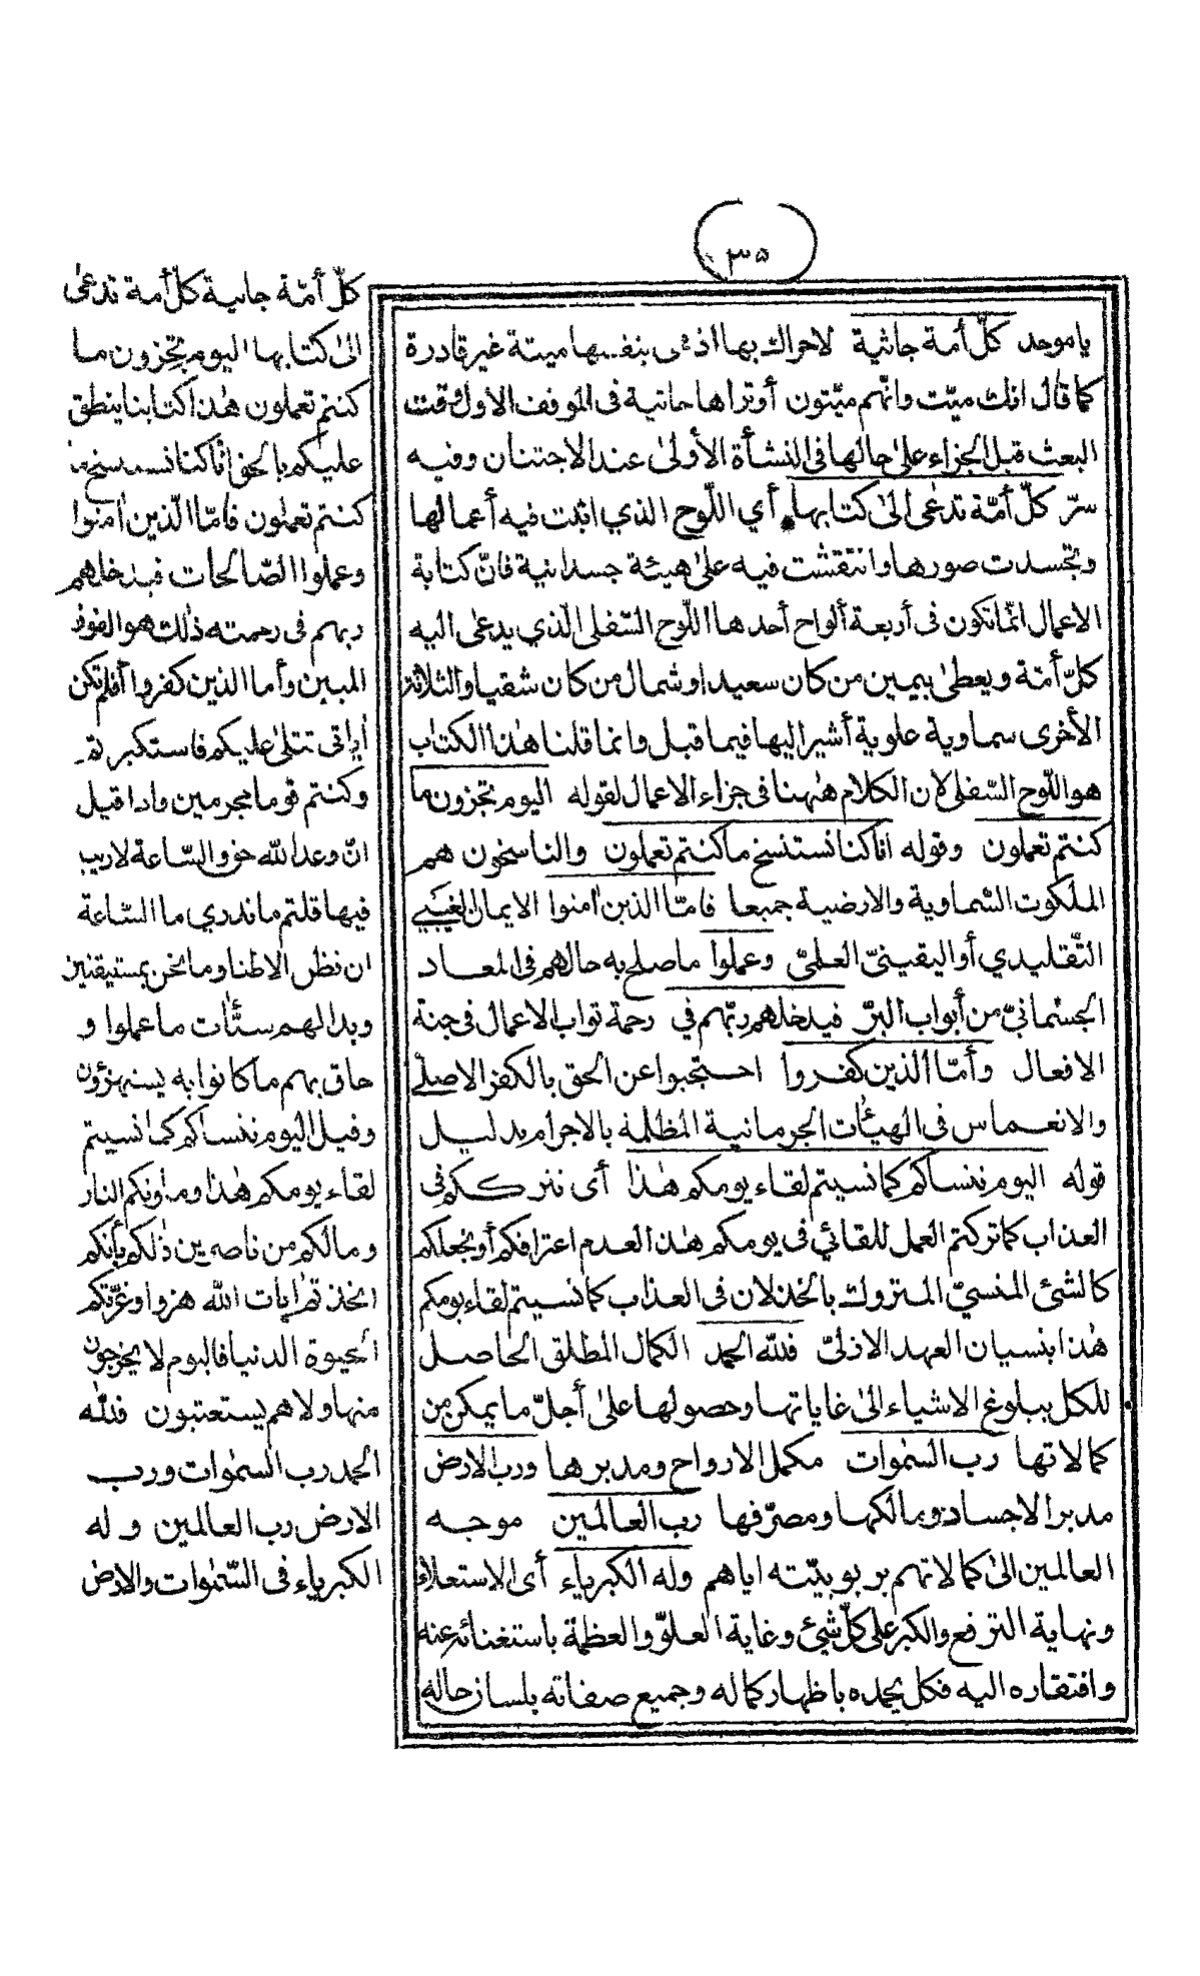 ٣٥
ياموحد كلّ أمة جاثية لاحراك بها اذ هى بنفسها ميتة غير قادرة
كما قال انك ميّت وانّهم ميّتون أو تراها جاثية فى الموقف الاول وقت
البعث قبل الجزاء على حالها فى النشأة الأولىٰ عند الاجتنان وفيه
سرّ كلّ أمّة تدعٰى الىٰ كتابها أي اللّوح الذي اثبت فيه أعمالها
وتجسدت صورها وانتقشت فيه علىٰ هيئة جسدانية فانّ كتابة
الاعمال انّما تكون فى أربعة ألواح أحدها اللّوح السّفلى الّذي يدعٰى اليه
كلّ أمّة ويعطىٰ بيمين من كان سعيدا وشمال من كان شقيا والثلاثة
الأخرى سماوية علوية أشير اليها فيما قبل وانما قلنا هٰذا الكتاب
هو اللّوح السّفلى لان الكلام هٰهنا فى جزاء الاعمال لقوله اليوم تجزون ما
كنتم تعملون وقوله انا كنا نستنسخ ما كنتم تعملون والناسخون هم
الملكوت السّماوية والارضية جميعا فامّا الذين اٰمنوا الايمان الغيبي
التّقليدي أو اليقينيّ العلميّ وعملوا ما صلح به حالهم فى المعاد
الجسمانيّ من أبواب البرّ فيدخلهم ربّهم في رحمة ثواب الاعمال فى جنة
الافعال وأمّا الذين كفروا احتجبوا عن الحق بالكفر الاصلى
والانغماس فى الهيئات الجرمانية المظلمة بالاجرام بدليل
قوله اليوم ننساكم كما نسيتم لقاء يومكم هٰذا أى نترككم فى
العذاب كما تركتم العمل للقائي فى يومكم هٰذا لعدم اعترافكم أو نجعلكم
كالشئ المنسيّ المتروك بالخذلان فى العذاب كما نسيتم لقاء يومكم
هٰذا بنسيان العهد الازليّ فللّه الحمد الكمال المطلق الحاصل
للكل ببلوغ الاشياء الىٰ غاياتها وحصولها علىٰ أجلّ ما يمكن من
كمالاتها رب السمٰوات مكمل الارواح ومدبرها ورب الارض
مدبر الاجساد ومالكها ومصرّفها رب العالمين موجه
العالمين الىٰ كمالاتهم بربوبيّته اياهم وله الكبرياء أى الاستعلاء
ونهاية الترفع والكبر على كلّ شئ وغاية العلوّ والعظمة باستغنائه عنه
وافتقاره اليه فكل يحمده باظهار كماله وجميع صفاته بلسان حاله
كلّ أمّة جاثية كلّ أمة تدعٰى
الىٰ كتابها اليوم تجزون ما
كنتم تعملون هٰذا كتابنا ينطق
عليكم بالحق انا كنا نستنسخ ما
كنتم تعملون فامّا الّذين اٰمنوا
وعملوا الصّالحات فيدخلهم
ربهم فى رحمته ذٰلك هو الفوز
المبين وأما الذين كفروا أفلم تكن
اٰياتى تتلىٰ عليكم فاستكبرتم
وكنتم قوما مجرمين واذا قيل
انّ وعد اللّٰه حق والسّاعة لاريب
فيها قلتم ما ندري ما السّاعة
ان نظن الا ظنا وما نحن بمستيقنين
وبدا لهم سيّئات ما عملوا و
حاق بهم ما كانوا به يستهزؤن
وقيل اليوم ننساكم كما نسيتم
لقاء يومكم هٰذا ومأوٰىكم النار
ومالكم من ناصرين ذٰلكم بأنكم
اتخذتم اٰيات اللّٰه هزوا وغرّتكم
الحيوة الدنيا فاليوم لا يخرجون
منها ولا هم يستعتبون فللّٰه
الحمد رب السمٰوات ورب
الارض رب العالمين وله
الكبرياء فى السّمٰوات والارض